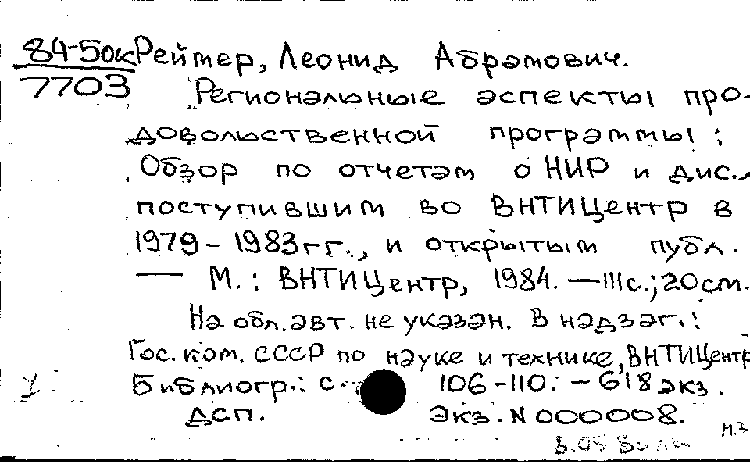 84-5ок Реймер, Леонид Абрамович.
7703
Региональные аспекты про-
довольственной программы :
Обзор по отчетам о НИР и дис.,
поступившим во ВНТИЦентр в
1979-1983гг., и открытым публ.
— М. : ВНТИЦентр, 1984. — 111с.; 20см.
На обл. авт. не указан. В надзаг.:
Гос. ком. СССР по науке и технике, ВНТИЦентр
Библиогр.: с. 106-110. - 618 экз.
ДСП. Экз. N 000008.